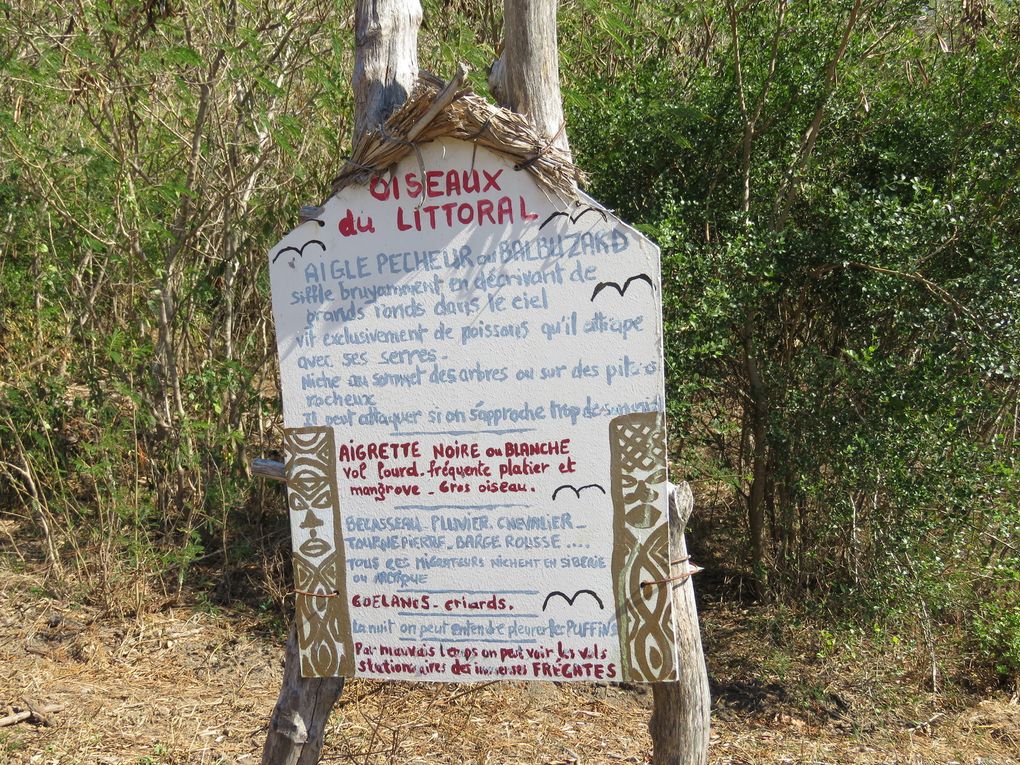 OISEAUX
du LITTORAL
AIGLE PECHEUR ou BALBUZARD
siffle bruyamment en décrivant de
grands ronds dans le ciel
vit exclusivement de poissons qu'il attrape
avec ses serres -
Niche au sommet des arbres ou sur des pitons
rocheux
Il peut attaquer si on s'approche trop de son nid
AIGRETTE NOIRE ou BLANCHE
Vol lourd. fréquente platier et
mangrove - Gros oiseau.
BECASSEAU_PLUVIER_CHEVALIER_
TOURNEPIERRE_BARGE ROUSSE ....
TOUS CES MIGRATEURS NICHENT EN SIBERIE
OU ARCTIQUE
GOELANDS - criards.
La nuit on peut entendre pleurer les PUFFINS
Par mauvais temps on peut voir les vols
stationnaires des immenses FRÉGATES